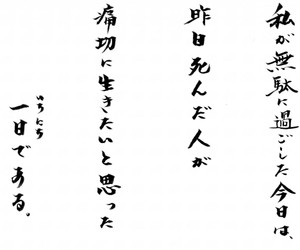 私が無駄に過ごした今日は、
昨日死んだ人が
痛切に生きたいと思った
一日である。
いちにち